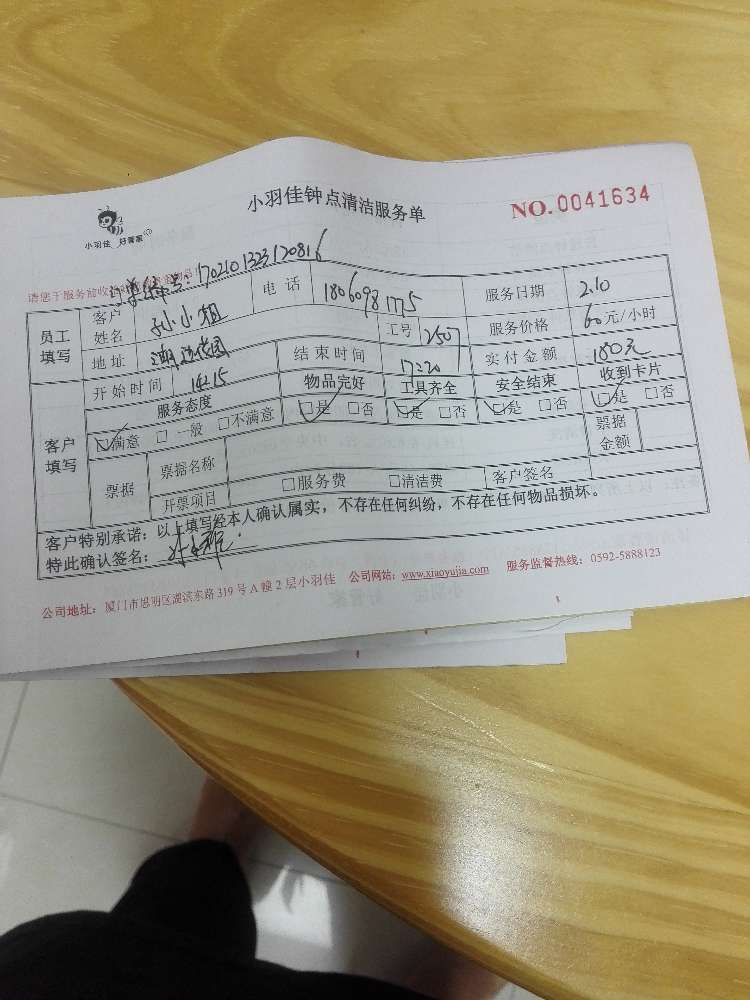 小羽佳钟点清洁服务单
NO. 0041634
小羽佳 好管家
请您于服务前收
订单编号：1702101323120816
员工填写 客户姓名 孙小姐 电话 18060981775 服务日期 2.10
地址 工号 2507 服务价格 60元/小时
开始时间 14:15 结束时间 17:20 实付金额 180元
客户填写 服务态度 物品完好 工具齐全 安全结束 收到卡片
☑满意 □一般 □不满意 ☑是 □否 ☑是 □否 ☑是 □否 ☑是 □否
票据 票据名称 票据金额
开票项目 □服务费 □清洁费 客户签名
客户特别承诺：以上填写经本人确认属实，不存在任何纠纷，不存在任何物品损坏。
特此确认签名：
公司地址：厦门市思明区湖滨东路319号A幢2层小羽佳 公司网站：www.xiaoyujia.com 服务监督热线：0592-5888123